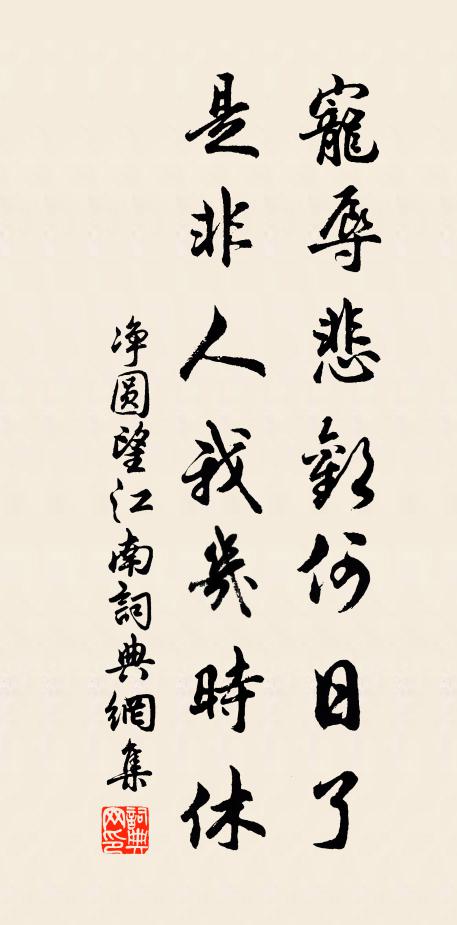 寵辱悲歡何日了
是非人我幾時休
净圆望江南詞典網集
詞典网印